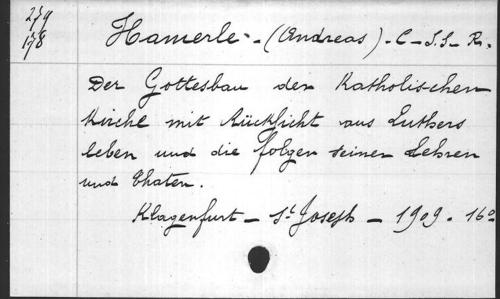 279
178
Hamerle - (Andreas) - C - S.S - R.
Der Gottesbau der Katholischen
Kirche mit Rücksicht aus Luthers
leben und die folgen seiner Lehren
und Thaten.
Klagenfurt - St Joseph - 1909 - 16°